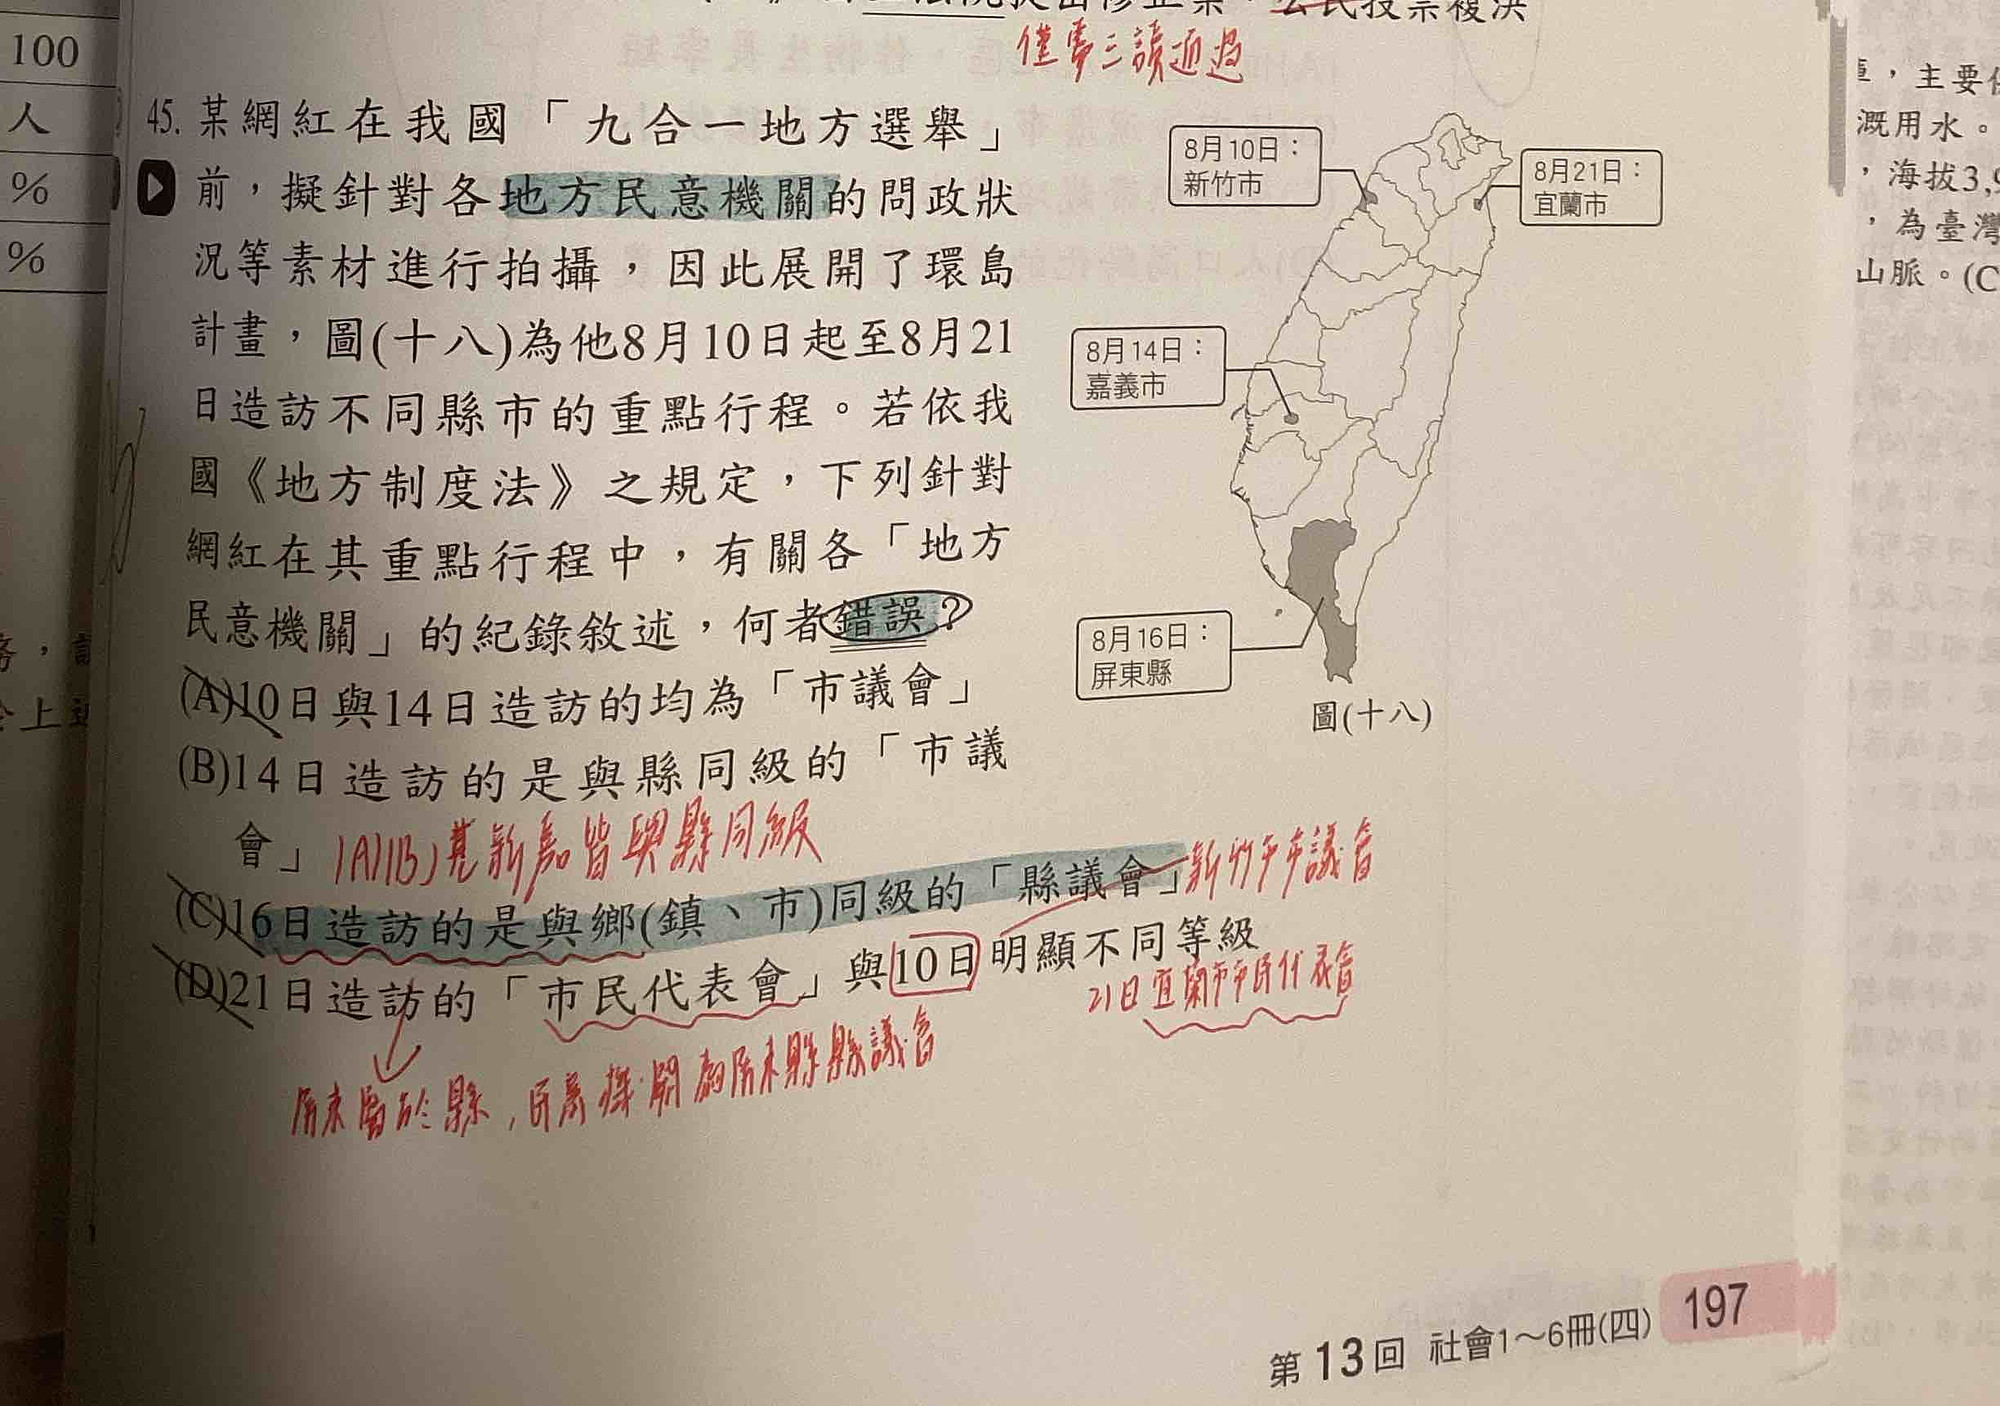 100
人
%
%
公民投票複決
僅需三讀通過
45. 某網紅在我國「九合一地方選舉」
前，擬針對各地方民意機關的問政狀
況等素材進行拍攝，因此展開了環島
計畫，圖(十八)為他8月10日起至8月21
日造訪不同縣市的重點行程。若依我
國《地方制度法》之規定，下列針對
網紅在其重點行程中，有關各「地方
民意機關」的紀錄敘述，何者錯誤？
(A)10日與14日造訪的均為「市議會」
(B)14日造訪的是與縣同級的「市議
會」
(A)(B)基新嘉皆與縣同級
(C)16日造訪的是與鄉(鎮、市)同級的「縣議會」
新竹市市議會
(D)21日造訪的「市民代表會」與10日明顯不同等級
21日宜蘭市市民代表會
屏東屬於縣，民意機關為屏東縣縣議會
8月10日：
新竹市
8月21日：
宜蘭市
8月14日：
嘉義市
8月16日：
屏東縣
圖(十八)
，主要
溉用水。
，海拔3,9
，為臺灣
山脈。(C
第13回 社會1～6冊(四) 197